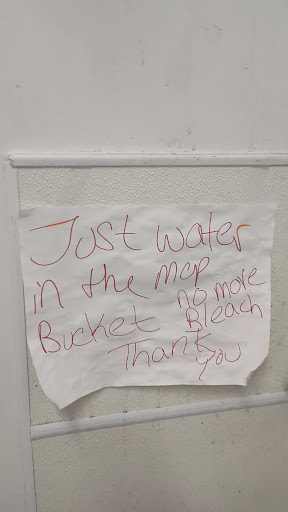 Just water
in the mop
Bucket no more
Bleach
Thank
you